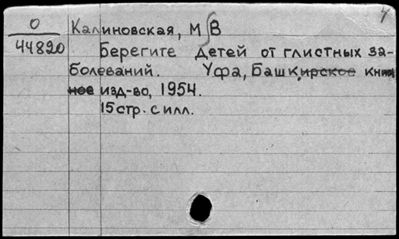 О
44820
Калиновская, М В
Берегите детей от глистных за-
болеваний. Уфа, Башкирское книж
ное изд-во, 1954.
15 стр. с илл.